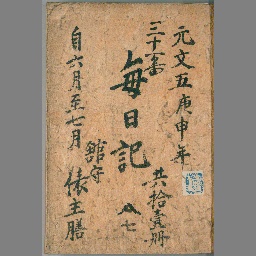 元文五庚申年
三十一番
毎日記
共拾壹冊
八七
自六月至七月
舘守
俵主膳